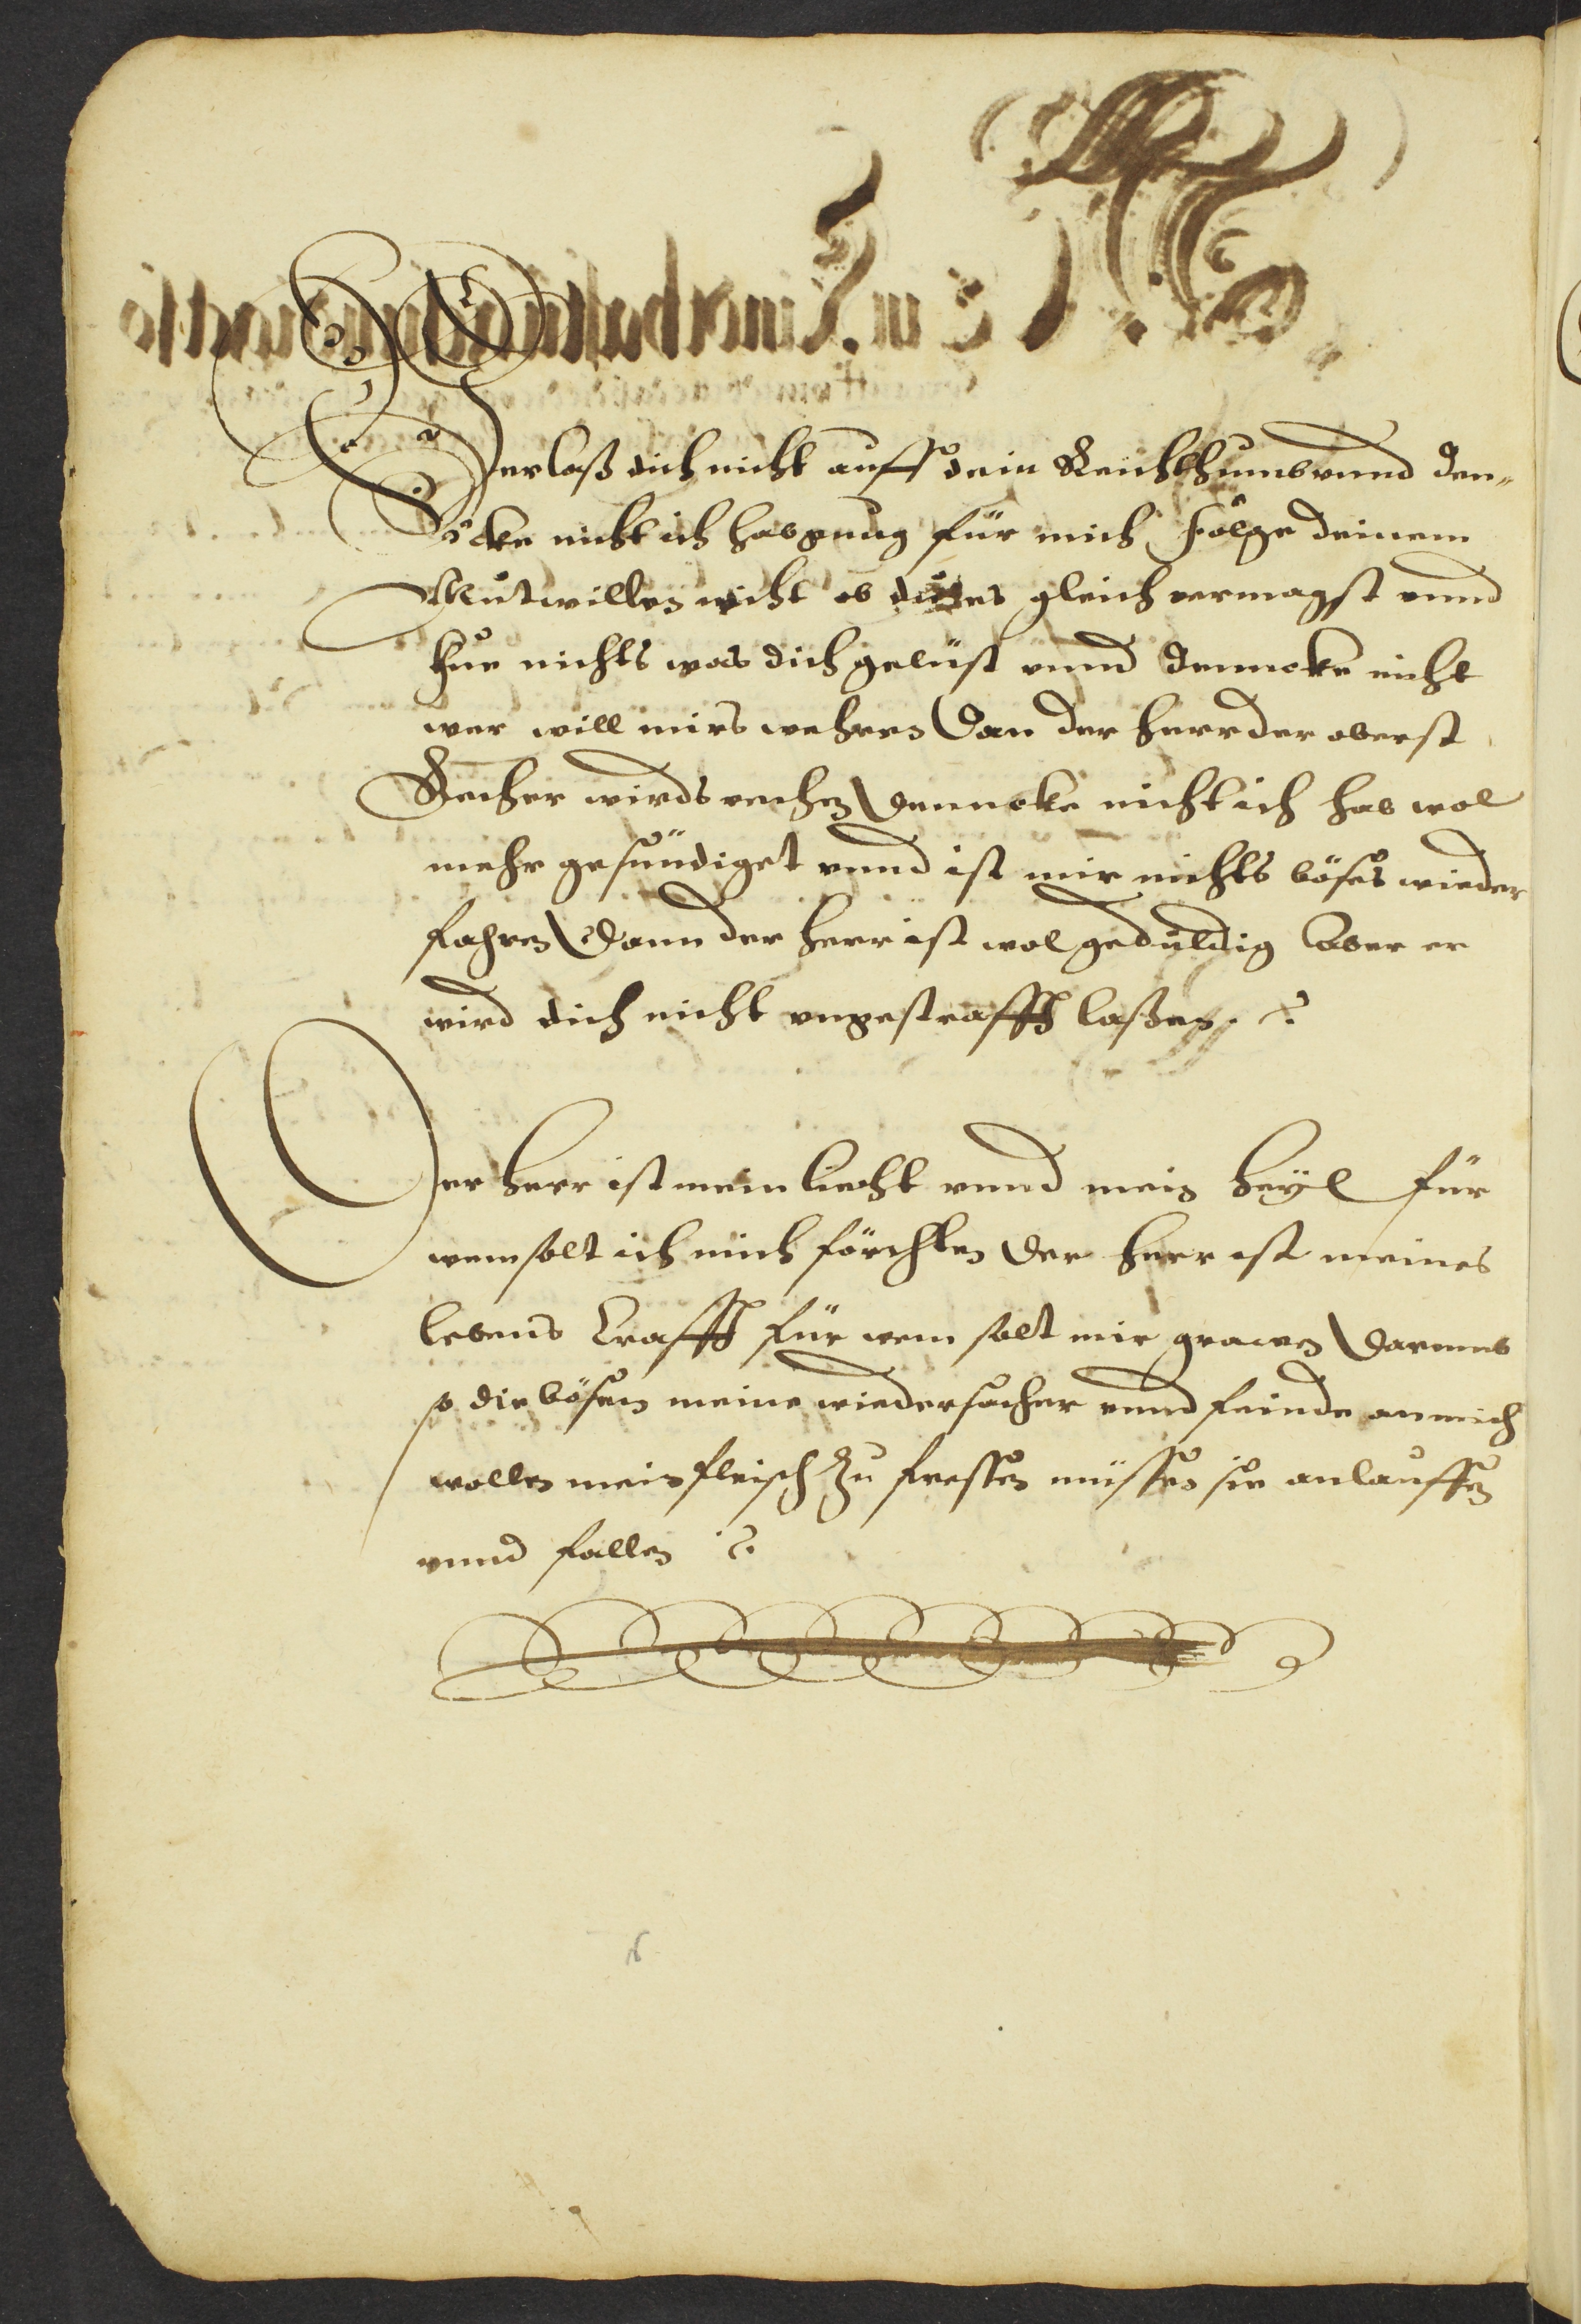 Verlaß dich nicht auff dein Reichthumb vnnd den-
cke nicht ich hab gnug für mich folge deinem
Mutwillen nicht ob du es gleich vermagst vnnd
thue nichts was dich gelüst vnnd dencke nicht
wer will mirs wehren dan der herr der oberst
Recher wirds rechen denncke nicht ich hab wol
mehr gesündiget vnnd ist mir nichts böses wieder
fahren dann der herr ist wol geduldig aber er
wird dich nicht vngestrafft laßen
Der herr ist mein liecht vnnd mein heÿl für
wem solt ich mich förchten der herr ist meines
lebens krafft für wem solt mir grawen darumb
so die bösen meine wiedersacher vnnd feinde an mich
wollen mein fleisch zu fressen müssen sie anlauffen
vnnd fallen